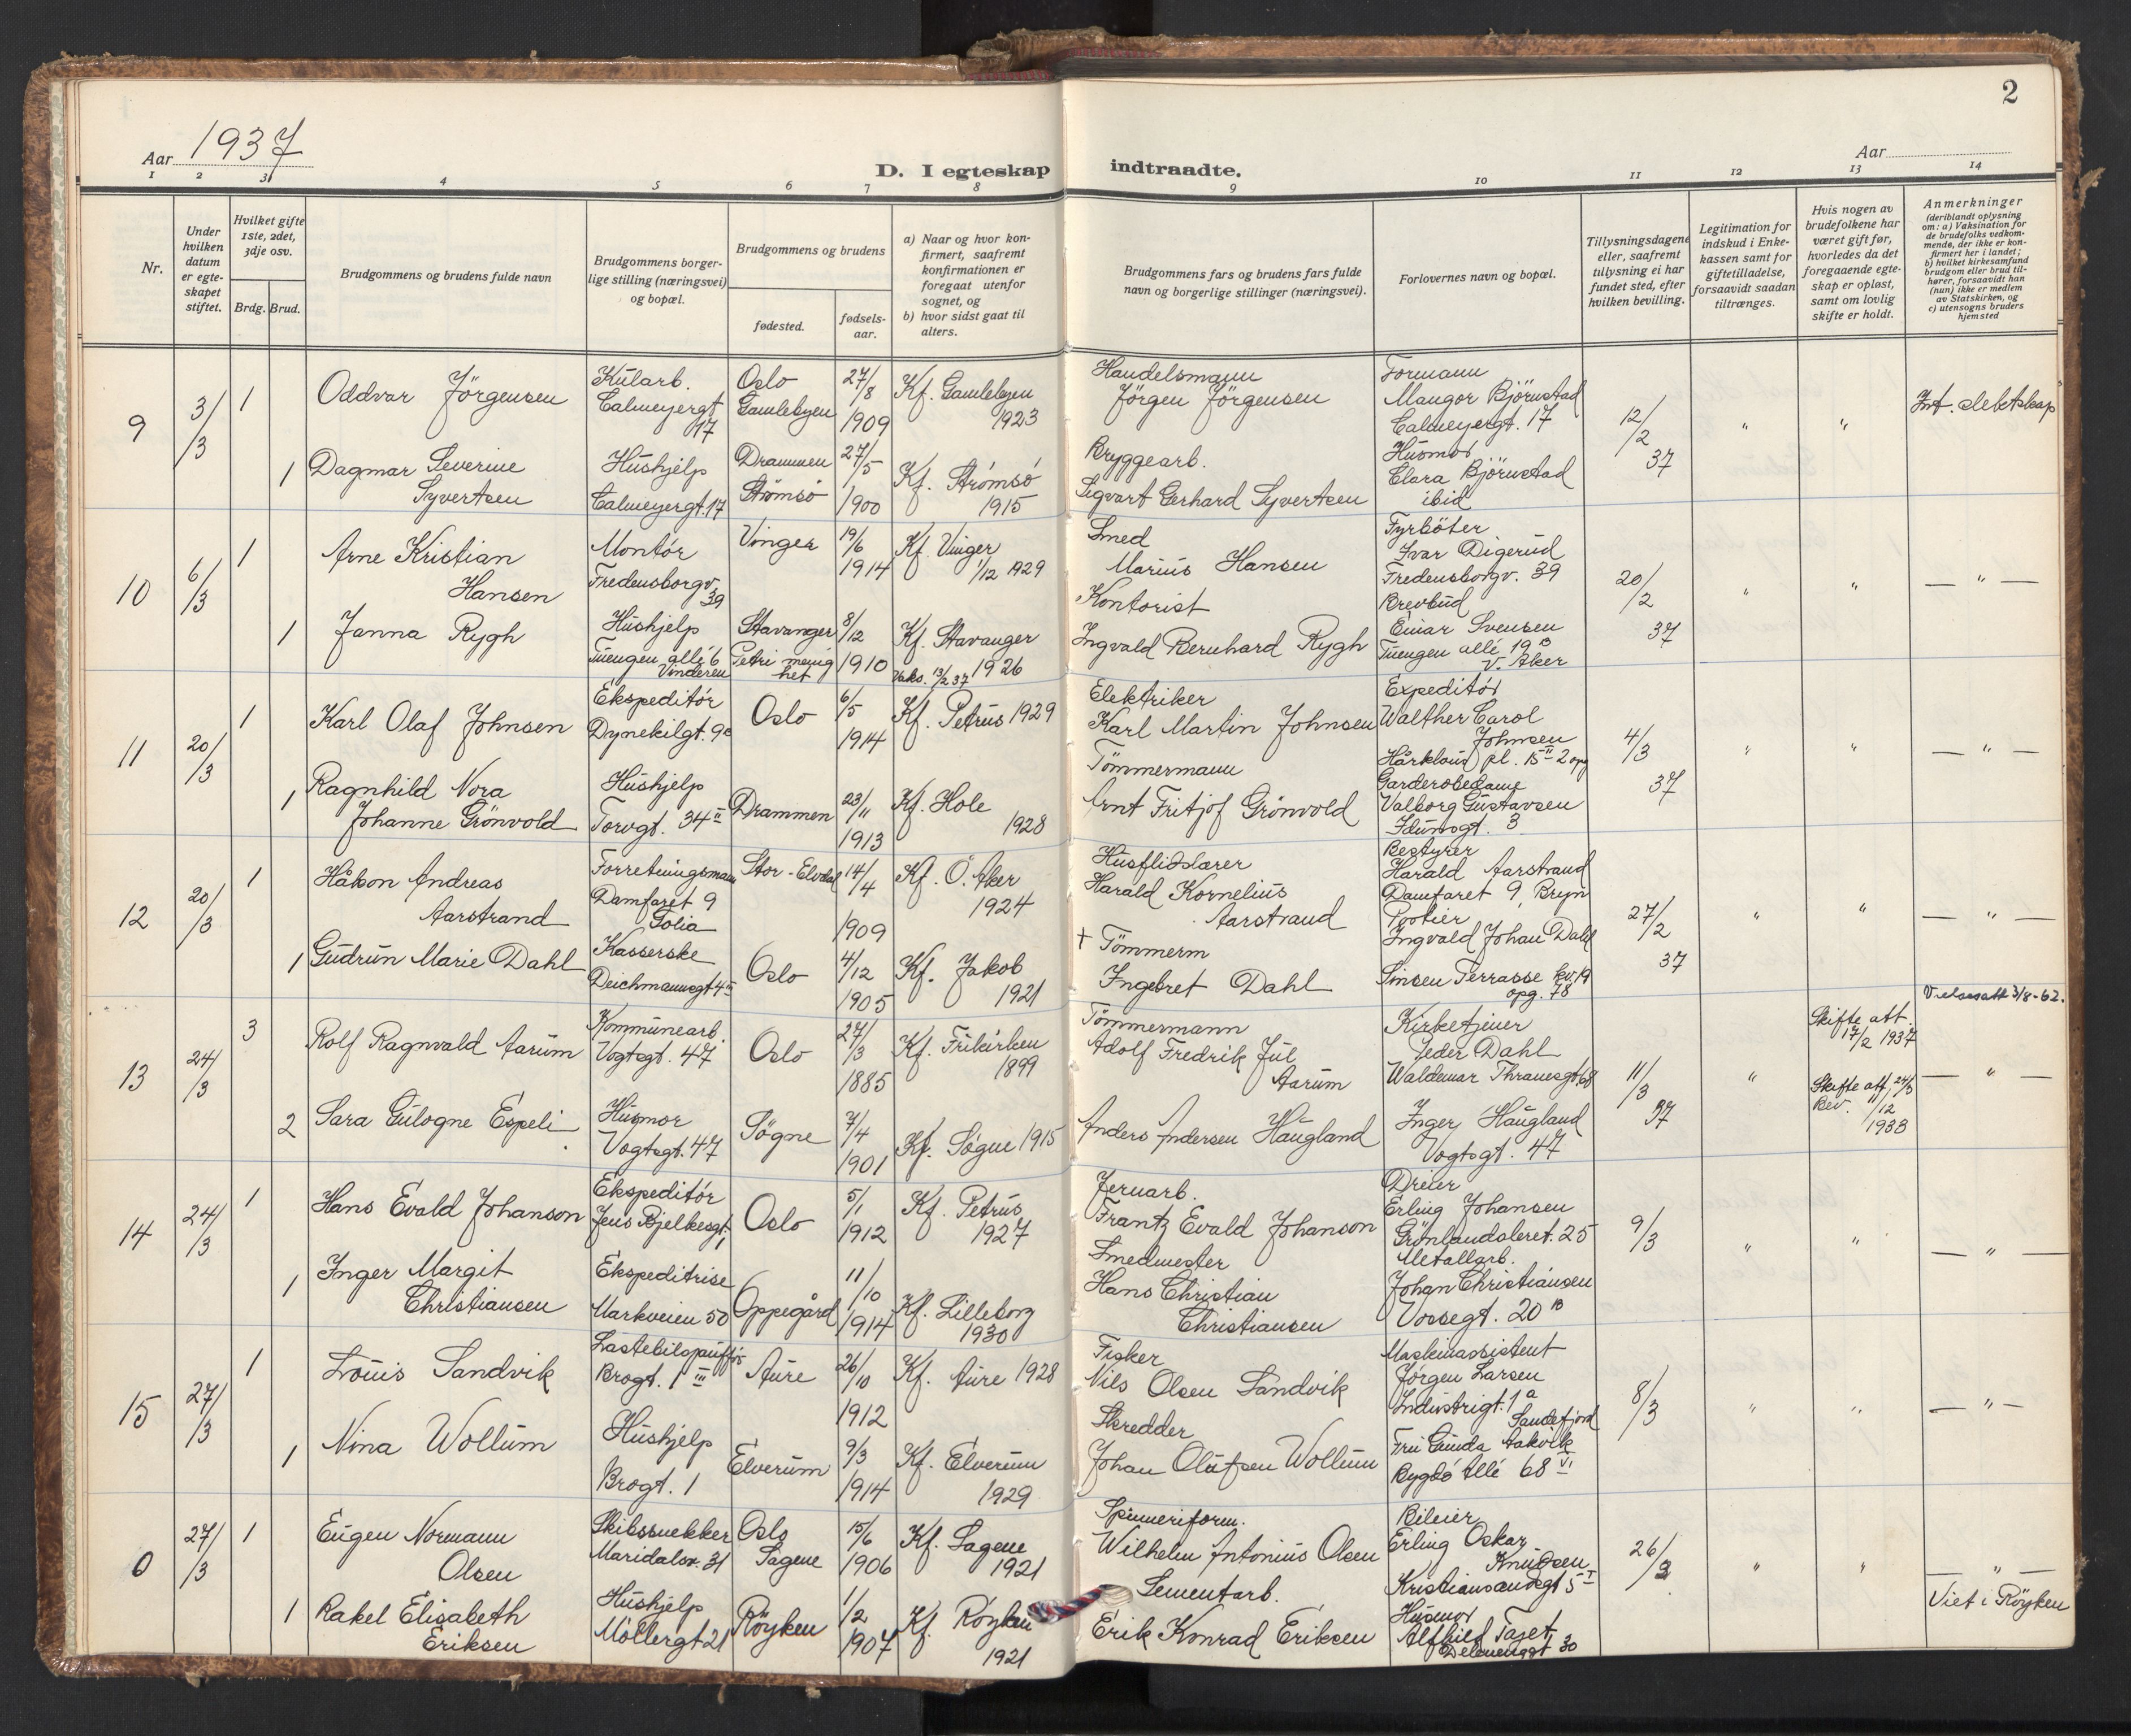 2
Aar 1937
D. I egteskap indtraadte.
Aar
1 2 3 4 5 6 7 8 9 10 11 12 13 14
Nr.
Under hvilken datum er egteskapet stiftet.
Hvilket gifte 1ste, 2det, 3dje osv.
Brdg. Brud.
Brudgommens og brudens fulde navn
Brudgommens borgerlige stilling (næringsvei) og bopæl.
Brudgommens og brudens
fødested.
fødselsaar.
a) Naar og hvor konfirmert, saafremt konfirmationen er foregaat utenfor sognet, og
b) hvor sidst gaat til alters.
Brudgommens fars og brudens fars fulde navn og borgerlige stillinger (næringsvei).
Forlovernes navn og bopæl.
Tillysningsdagene eller, saafremt tillysning ei har fundet sted, efter hvilken bevilling.
Legitimation for indskud i Enkekassen samt for giftetilladelse, forsaavidt saadan tiltrænges.
Hvis nogen av brudefolkene har været gift før, hvorledes da det foregaaende egteskap er opløst, samt om lovlig skifte er holdt.
Anmerkninger
(deriblandt oplysning om: a) Vaksination for de brudefolks vedkommende, der ikke er konfirmert her i landet; b) hvilket kirkesamfund brudgom eller brud tilhører, forsaavidt han (hun) ikke er medlem av Statskirken, og c) utensogns bruders hjemsted
9 3/3 1 Oddvar Jörgensen
Kularb. Calmeyergt 17
Oslo Gamlebyen 27/8 1909
Kf. Gamlebyen 1923
Handelsmann Jörgen Jörgensen
Formann Maugor Björnstad Calmeyergt. 17
12/2 37 " "
1 Dagmar Severine Syvertsen
Hushjelp Calmeyergt. 17
Drammen Strömsö 27/5 1900
Kf. Strömsö 1915
Bryggearb. Sigvart Gerhard Syvertsen
Husmor Clara Björnstad ibid
10 6/3 1 Arne Kristian Hansen
Montör Fredensborgv. 39
Vinger 19/6 1914
Kf. Vinger 1/12 1929
Smed Marius Hansen
Fyrböter Ivar Digerud Fredensborgv. 39
20/2 37 " " — " —
1 Janna Rygh
Hushjelp Tuengen allé 6 Vinderen
Stavanger Petri menighet 8/12 1910
Kf. Stavanger 1926 Vaks. 13/2 37
Kontorist Ingvald Bernhard Rygh
Brevbud Einar Svensen Tuengen allé 19 B V. Aker
11 20/3 1 Karl Olaf Johnsen
Ekspeditör Dynekilgt. 9c
Oslo 6/5 1914
Kf. Petrus 1929
Elektriker Karl Martin Johnsen
Expeditör Walther Carol Johnsen Hårklous pl. 15 II 2 opg
4/3 37 " " — " —
1 Ragnhild Nora Johanne Grönvold
Hushjelp Torvgt. 34 II
Drammen 23/11 1913
Kf. Hole 1928
Tömmermann Arnt Fritjof Grönvold
Garderobedame Valborg Gustavsen Idunsgt. 3
12 20/3 1 Håkon Andreas Aarstrand
Forretningsmann Damfaret 9
Stor-Elvdal 14/4 1909
Kf. Ö. Aker 1924
Husflidslærer Harald Kornelius Aarstrand
Bestyrer Harald Aarstrand Damfaret 9, Bryn
27/2 37 " " — " —
1 Gudrun Marie Dahl
Kasserske Deichmannsgt 4 II
Oslo 4/12 1905
Kf. Jakob 1921
+ Tömmerm Ingebret Dahl
Portier Ingvald Johan Dahl Sinsen Terrasse kv. 19 opg. 78
Vielsesatt 3/8-62.
13 24/3 3 Rolf Ragnvald Aarum
Kommunearb. Vogtsgt. 47
Oslo 27/3 1885
Kf. Frikirken 1899
Tömmermann Adolf Fredrik Jul Aarum
Kirketjener Peder Dahl Waldemar Thranesgt 68
11/3 37 "
Skifte att. 17/2 1937
— " —
2 Sara Gulogne Espeli
Husmor Vogtsgt. 47
Sögne 7/4 1901
Kf. Sögne 1915
Anders Andersen Haugland
Inger Haugland Vogtsgt. 47
Skifte att. 24/3 Bev. 11/12 1933
14 24/3 1 Hans Evald Johanson
Ekspeditör Jens Bjelkesgt. 1
Oslo 5/1 1912
Kf. Petrus 1927
Jernarb. Frantz Evald Johanson
Dreier Erling Johansen Grönlandsleret. 25
9/3 " " — " —
1 Inger Margit Christiansen
Ekspeditrise Markveien 50
Oppegård 11/10 1914
Kf. Lilleborg 1930
Smedmester Hans Christian Christiansen
Metallarb. Johan Christiansen Vossegt. 20 B
15 27/3 1 Louis Sandvik
Lastebilsjaufför Brogt. 1 III
Aure 26/10 1912
Kf. Aure 1928
Fisker Nils Olsen Sandvik
Maskinassistent Jörgen Larsen Industrigt. 1a Sandefjord
8/3 " " — " —
1 Nina Wollum
Hushjelp Brogt. 1
Elverum 9/3 1914
Kf. Elverum 1929
Skredder Johan Olufsen Wollum
Fru Gunda Aakvik Bygdö Allé 68 VI
0 27/3 1 Eugen Normann Olsen
Skibssnekker Maridalsv. 31
Oslo Sagene 15/6 1906
Kf. Sagene 1921
Spinneriform. Wilhelm Antonius Olsen
Bileier Erling Oskar Knudsen Kristiansandsgt 5 I
26/2 " " — " —
1 Rakel Elisabeth Eriksen
Hushjelp Möllergt 21
Röyken 1/2 1907
Kf. Röyken 1921
Sementarb. Erik Konrad Eriksen
Husmor Alfhild Taset 30
Viet i Röyken